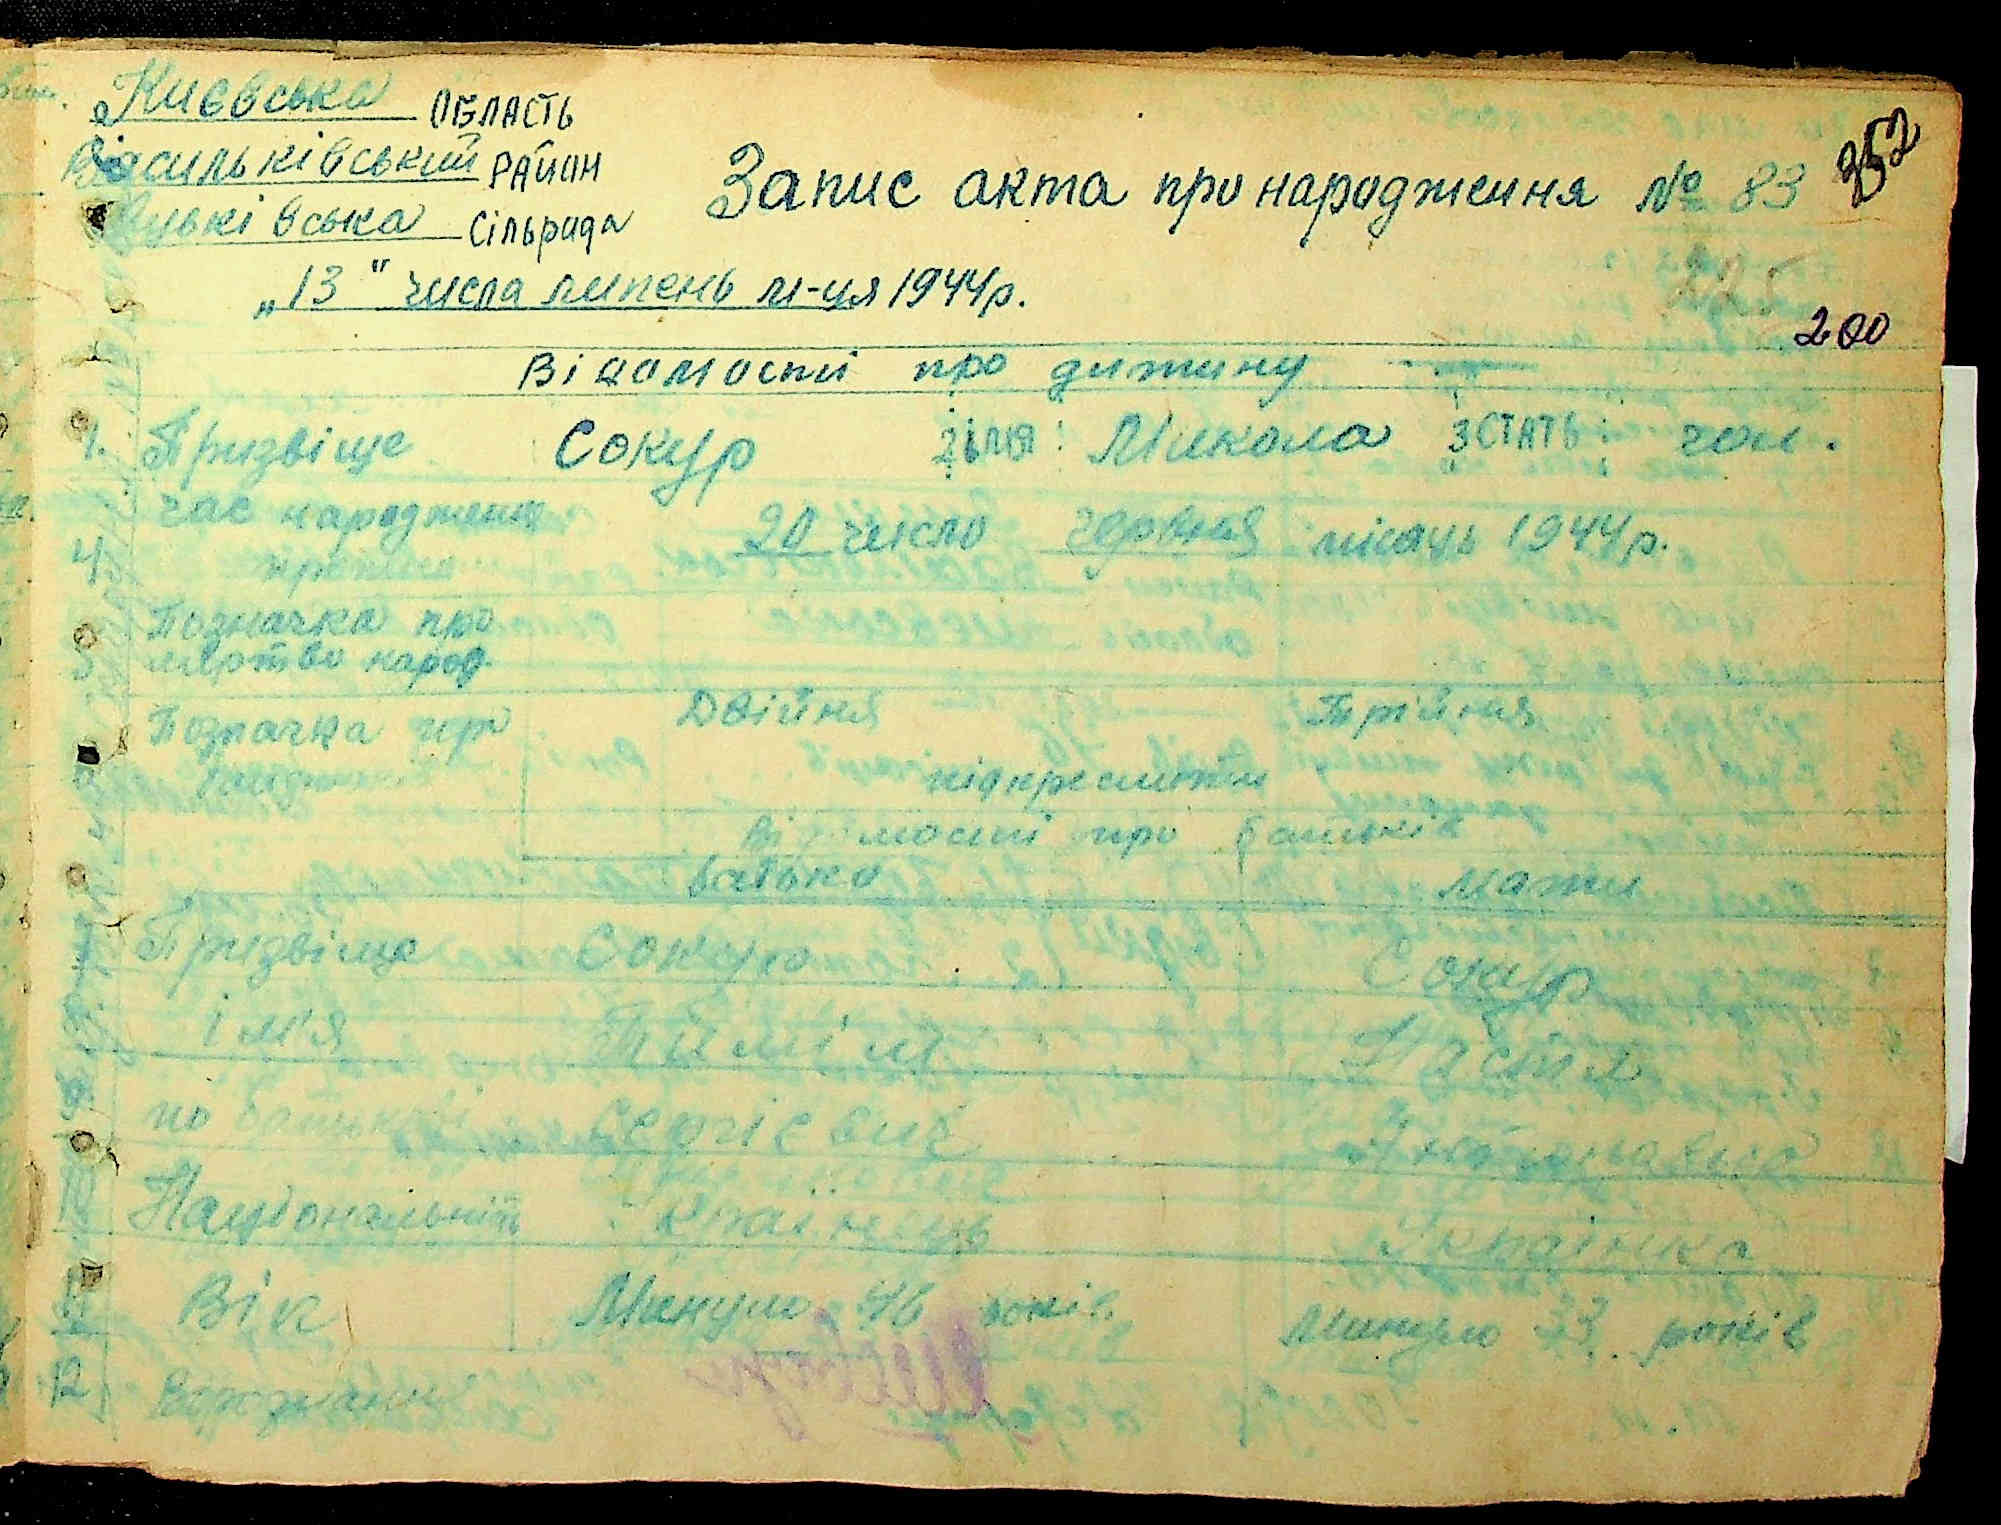 Києвська ОБЛАСТЬ
Васильківський РАЙОН
сільрада
Запис акта про народження № 83
352
„13" числа липень м-ця 1944р.
225
200
Відомості про дитину
1. Призвіще Сокур 2 ім'я: Микола 3 СТАТЬ: чол.
4 час народження 20 число червня місяць 1944р.
прописи
5 Позначка про
мертво народ.
Позначка про Двійня Трійня
підкреслити
Відомості про батьків
батько мати
Призвіще Сокур Сокур
ім'я Тиміш Настя
по батькові Сергієвич Антонавна
10 Національність Українець Українка
11 Вік Минуло 46 років Минуло 33 років
12